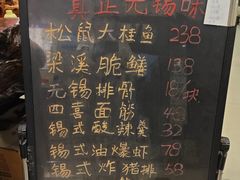 真正无锡味
松鼠大桂鱼 238
梁溪脆鳝 138
无锡排骨 18/块
四喜面筋 48
锡式酸辣羹 32
锡式油爆虾 78
锡式炸猪排 58